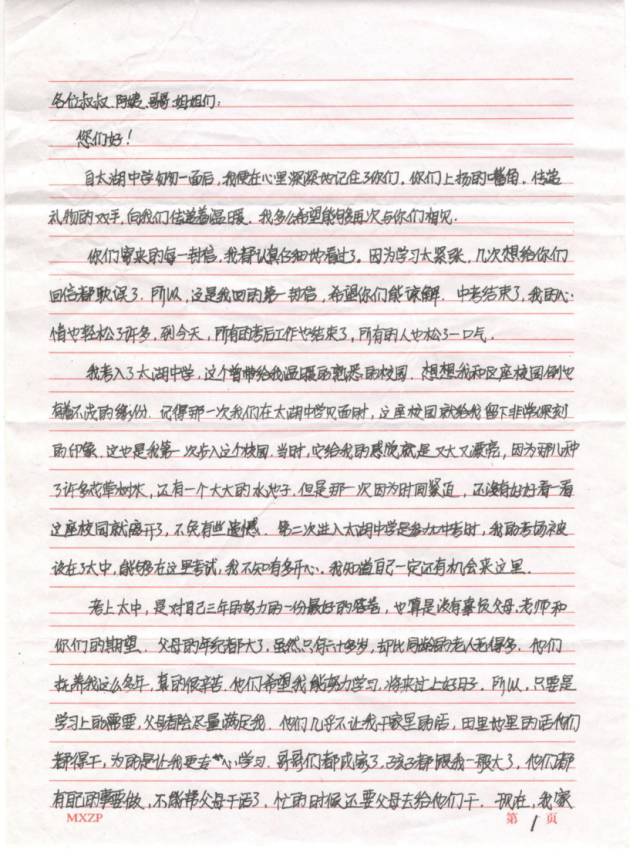 各位叔叔、阿姨、哥哥、姐姐们：
您们好！
自太湖中学匆匆一面后，我便在心里深深地记住了你们，你们上扬的嘴角，传递
礼物的双手，向我们传递着温暖。我多么希望能够再次与你们相见。
你们寄来的每一封信，我都认真仔细地看过了。因为学习太紧张，几次想给你们
回信都耽误了。所以，这是我回的第一封信，希望你们能谅解。中考结束了，我的心
情也轻松了许多，到今天，所有的考后工作也结束了，所有的人也松了一口气。
我考入了太湖中学，这个曾带给我温暖的熟悉的校园。想想我和这座校园倒也
有着不浅的缘份。记得那一次我们在太湖中学见面时，这座校园就给我留下非常深刻
的印象。这也是我第一次步入这个校园。当时，它给我的感觉就是又大又漂亮，因为那儿种
了许多花草树木，还有一个大大的水池子。但是那一次因为时间紧迫，还没有好好看一看
这座校园就离开了，不免有些遗憾。第二次进入太湖中学是参加中考时，我的考场被
设在了太中，能够在这里考试，我不知有多开心。我知道自己一定还有机会来这里。
考上太中，是对自己三年的努力的一份最好的答案，也算是没有辜负父母、老师和
你们的期望。父母的年纪都大了，虽然只有六十多岁，却比同龄的老人老得多。他们
抚养我这么多年，真的很辛苦。他们希望我能努力学习，将来过上好日子。所以，只要是
学习上的需要，父母都会尽量满足我。他们几乎不让我干家里的活，田里地里的活他们
都得干，为的是让我更专心学习。哥哥们都成家了，孩子都跟我一般大了，他们都
有自己的事要做，不能帮父母干活了，忙的时候还要父母去给他们干。现在，我家
MXZP
第 1 页